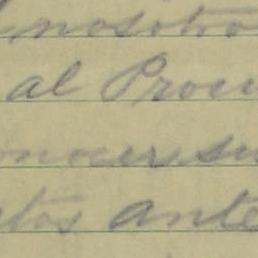 nosotro
al Procu
onocer su
tos ante